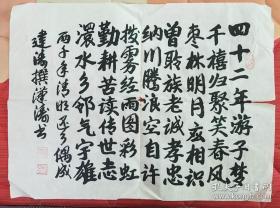 四十二年游子梦
千禧归聚笑春风
枣林明月互相识
曾聆族老诚孝忠
纳川腾浪空自许
拨雾经雨图彩虹
勤耕苦读传世志
濦水乡邻气宇雄
丙子年清明还乡偶成
建涛撰汉涛书